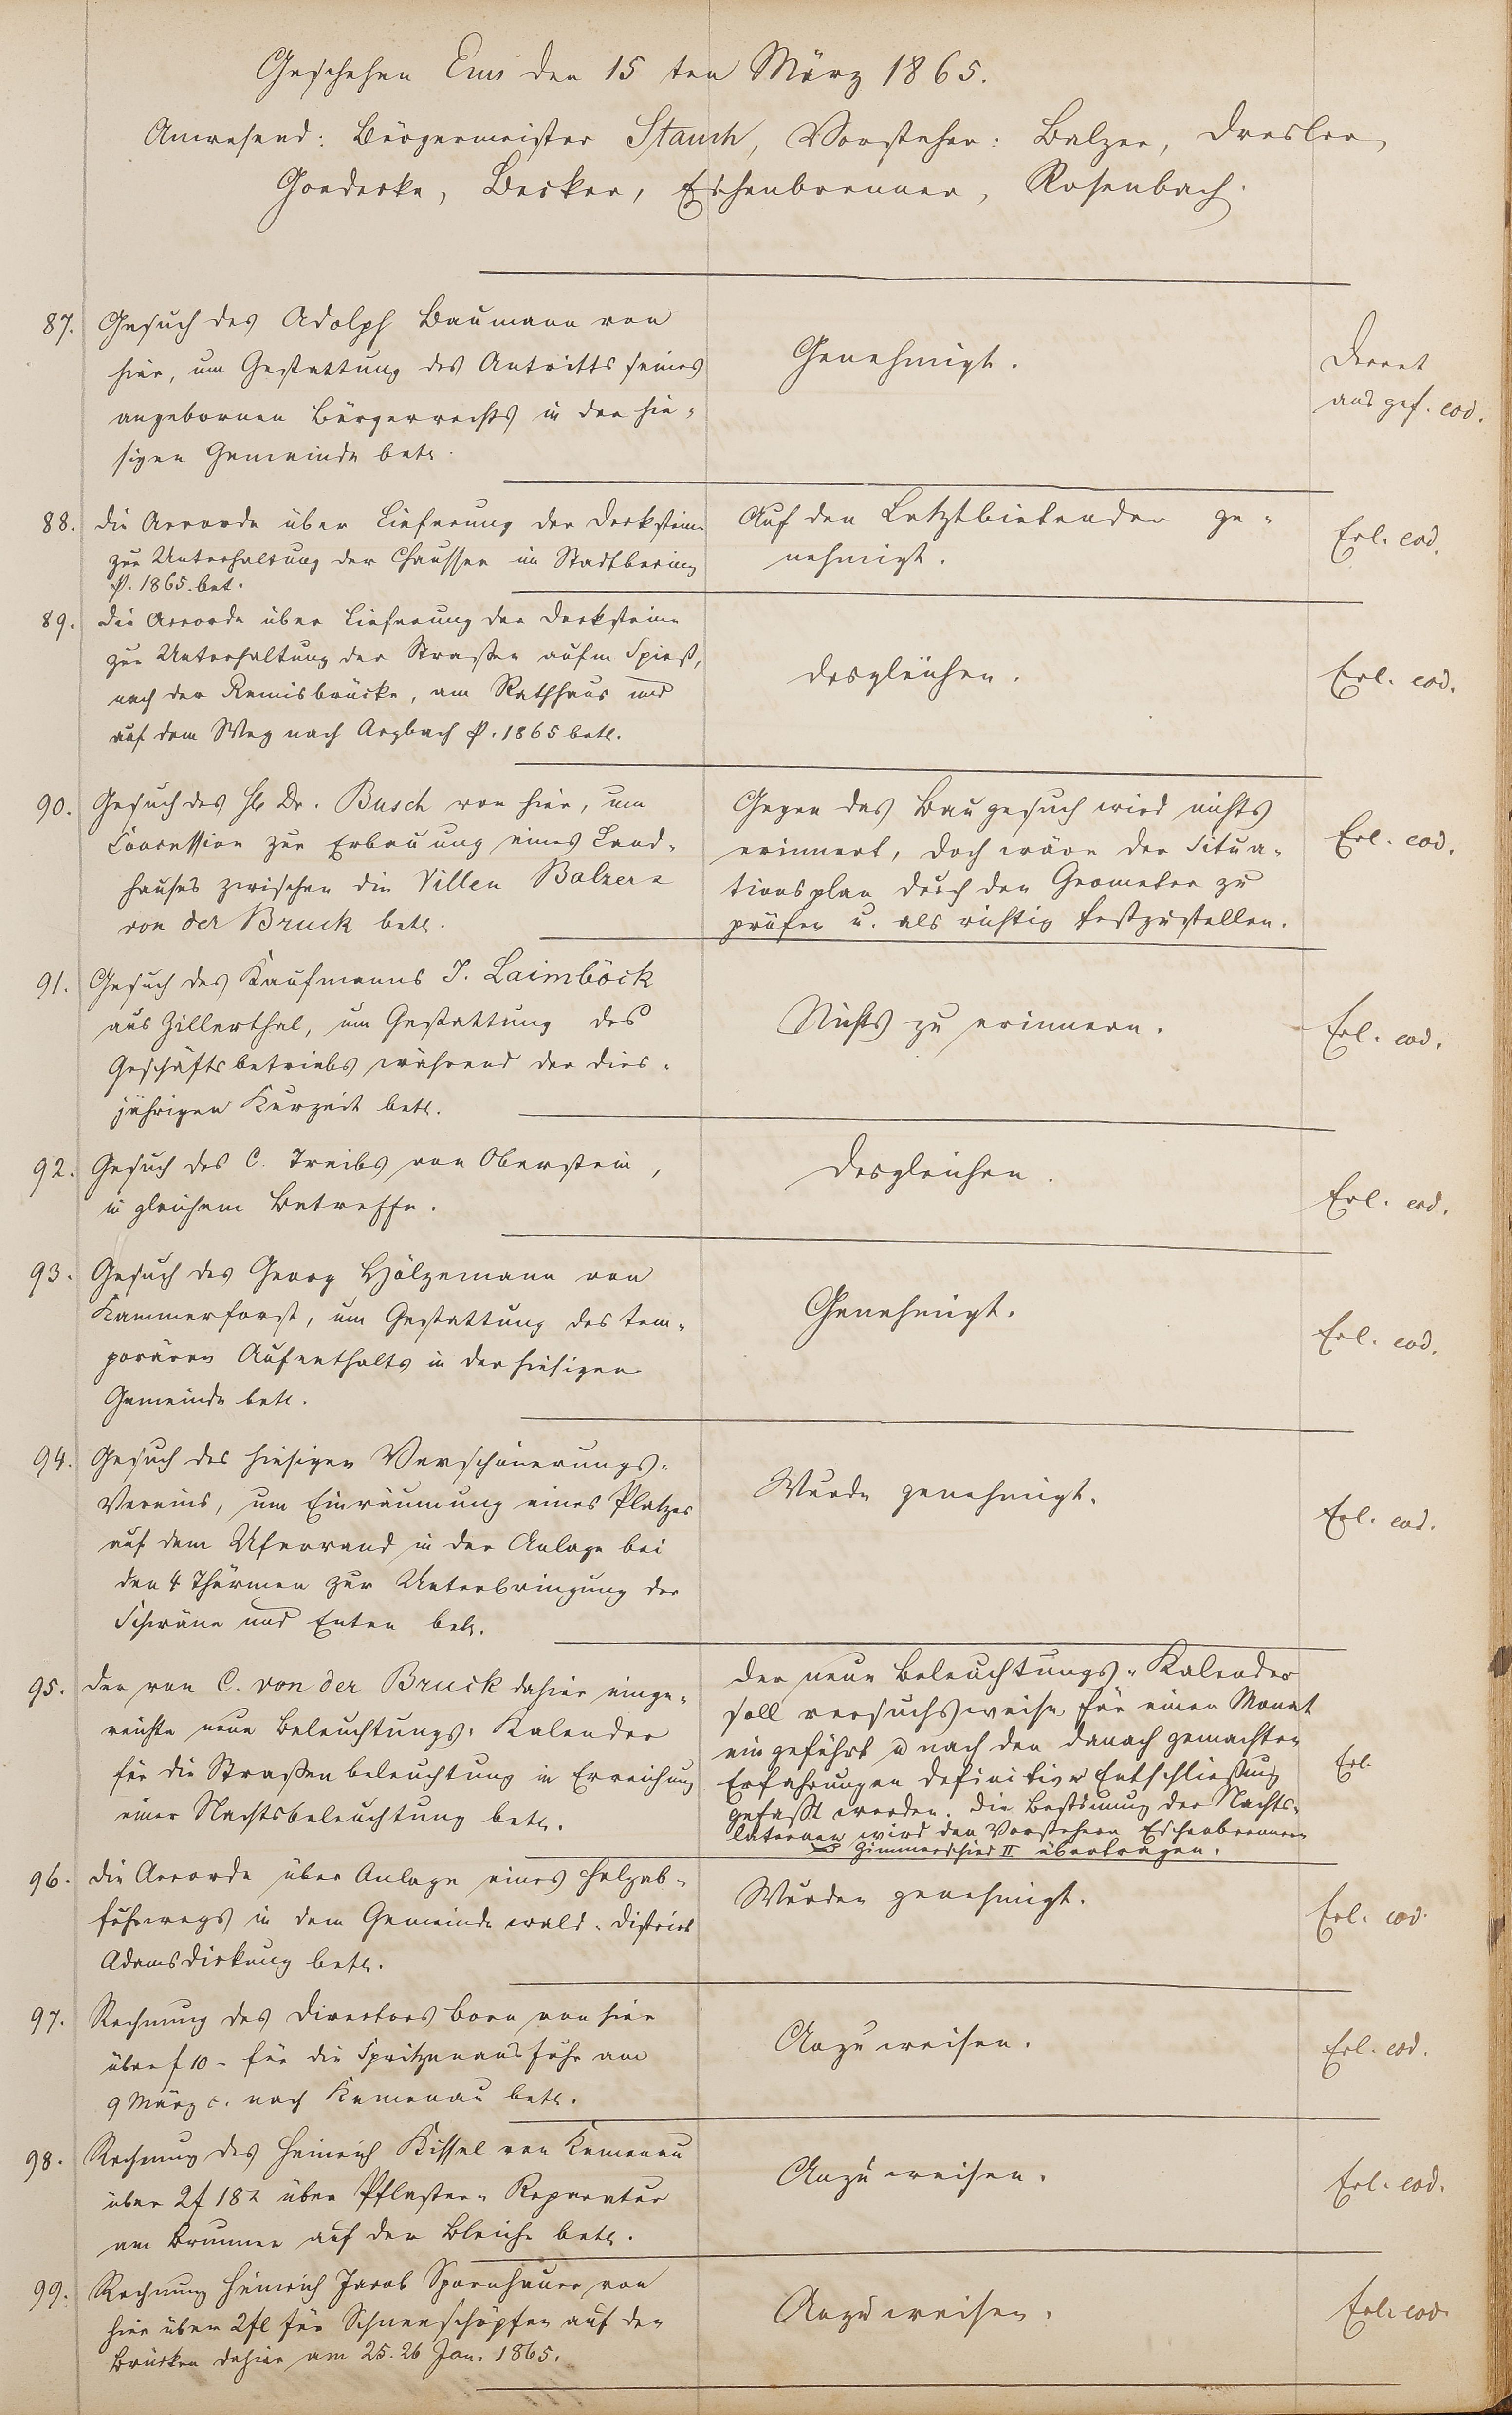 Geschehen Ems den 15 ten März 1865.
Anwesend: Bürgermeister Stauch, Vorsteher: Balzer, Dresler,
Goedecke, Becker, Eschenbrenner, Rosenbach.
87. Gesuch des Adolph Baumann von
hier, um Gestattung des Antritts seines
angebornen Bürgerrechts in der hie-
sigen Gemeinde betr.
Genehmigt.
Decret
ausgef. eod.
88. Die Accorde über Lieferung der Decksteine
zur Unterhaltung der Chaussee im Stadtbering
p. 1865. bet.
Auf den Letztbietenden ge-
nehmigt.
Erl. eod.
89. Die Accorde über Lieferung der Decksteine
zur Unterhaltung der Straßen aufm Spieß,
nach der Remisbrücke, am Rathhaus und
auf dem Weg nach Arzbach p. 1865 betr.
Desgleichen.
Erl. eod.
90. Gesuch des H. Dr. Busch von hier, um
Concession zur Erbauung eines Land-
hauses zwischen die Villen Balzer u
von der Bruck betr.
Gegen das Baugesuch wird nichts
erinnert, doch wäre der Situa-
tionsplan durch den Geometer zu
prüfen u. als richtig festzustellen.
Erl. eod.
91. Gesuch des Kaufmanns J. Laimböck
aus Zillerthal, um Gestattung des
Geschäftsbetriebs während der dies-
jährigen Kurzeit betr.
Nichts zu erinnern.
Erl. eod.
92. Gesuch des C. Treibs von Oberstein,
in gleichem Betreffe.
Desgleichen.
Erl. eod.
93. Gesuch des Georg Hölzemann von
Kammerforst, um Gestattung des tem-
porären Aufenthalts in der hiesigen
Gemeinde betr.
Genehmigt.
Erl. eod.
94. Gesuch des hiesigen Verschönerungs-
Vereins, um Einräumung eines Platzes
auf dem Uferrand in der Anlage bei
den 4 Thürmen zur Unterbringung der
Schwäne und Enten betr.
Wurde genehmigt.
Erl. eod.
95. Der von C. von der Bruck dahier einge-
reichte neue Beleuchtungs-Kalender
für die Straßenbeleuchtung in Erreichung
einer Nachtsbeleuchtung betr.
Der neue Beleuchtungs-Kalender
soll versuchsweise für einen Monat
eingeführt u nach den danach gemachten
Erfahrungen definitive Entschließung
gefaßt werden. Die Bestimung der Nachts-
laternen wird den Vorstehern Eschenbrenner
und Zimmerschied II übertragen.
Erl.
96. Die Accorde über Anlage eines Holzab-
fuhrwegs in dem Gemeindewald-District
Adamsdickung betr.
Wurden genehmigt.
Erl. eod.
97. Rechnung des Directors Born von hier
über f 10 - für die Spritzenausfuhr am
9 März c. nach Kemenau betr.
Anzuweisen.
Erl. eod.
98. Rechnung des Heinrich Kissel von Kemenau
über 2f 18x über Pflaster-Reparatur
am Brunnen auf der Bleiche betr.
Anzuweisen.
Erl. eod.
99. Rechnung Heinrich Jacob Spornhauer von
hier über 2fl für Schneeschöpfen auf den
Brücken dahier am 25. 26 Jan. 1865.
Anzuweisen.
Erl. eod.